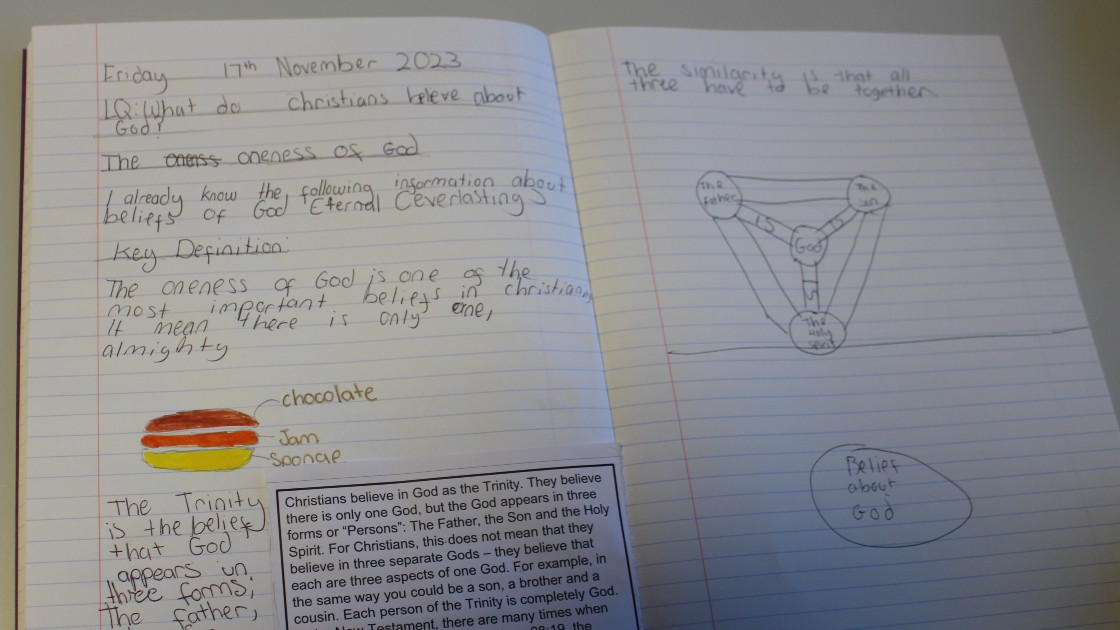 Friday 17th November 2023
LQ: What do christians beleve about
God?
The oneness of God
I already know the following information about
beliefs of God Eternal (everlasting)
Key Definition:
The oneness of God is one of the
most important beliefs in christianity
It mean there is only one,
almighty
chocolate
Jam
Sponge
The Trinity
is the belief
that God
appears in
three forms,
The father,
Christians believe in God as the Trinity. They believe
there is only one God, but the God appears in three
forms or “Persons”: The Father, the Son and the Holy
Spirit. For Christians, this does not mean that they
believe in three separate Gods – they believe that
each are three aspects of one God. For example, in
the same way you could be a son, a brother and a
cousin. Each person of the Trinity is completely God.
New Testament, there are many times when
the
The similarity is that all
three have to be together
The
father
The
Son
IS
IS
God
IS
The
Holy
Spirit
Belief
about
God